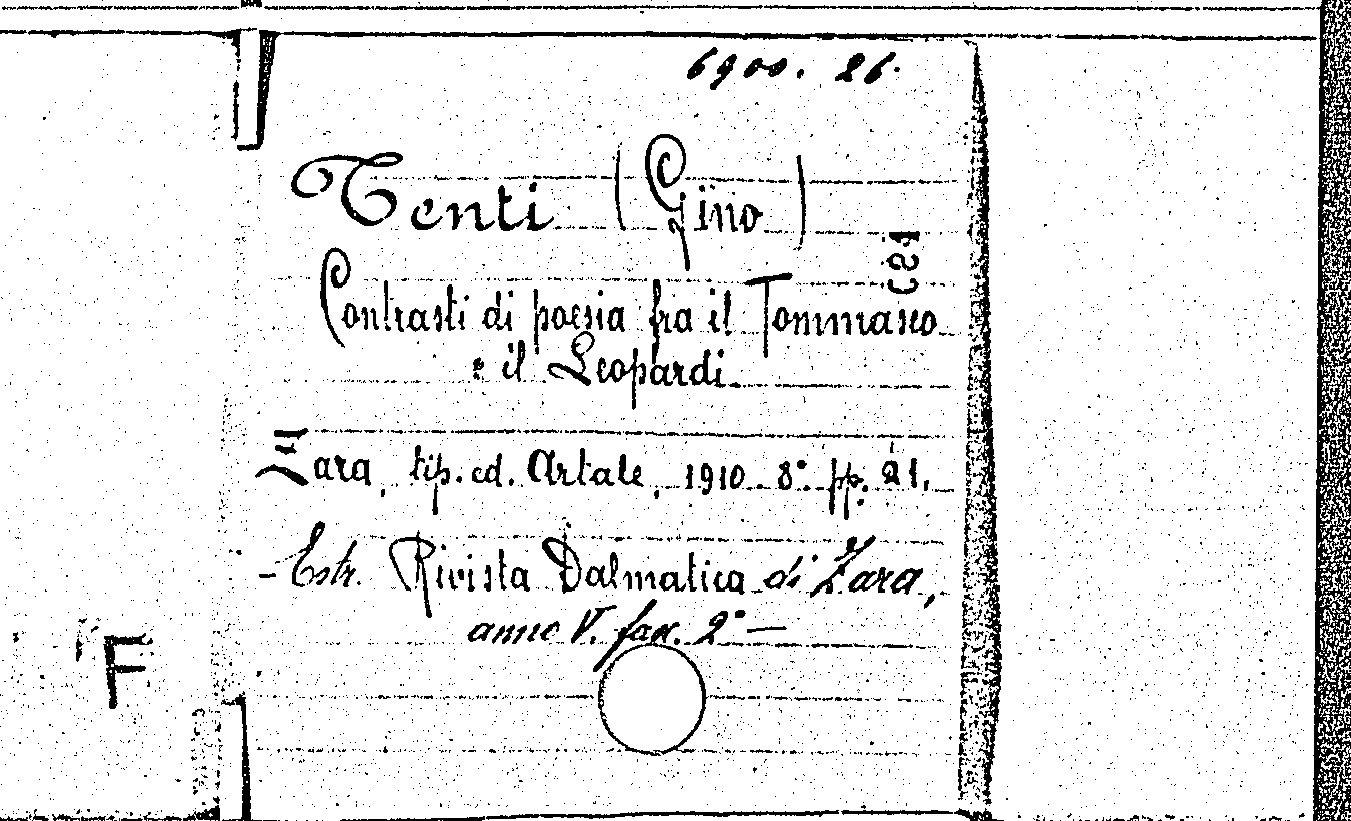 6900. 26.
Tenti (Gino)
Contrasti di poesia fra il Tommaseo
e il Leopardi.
Zara, tip. ed. Artale, 1910. 8° pp. 21.
- Estr. Rivista Dalmatica di Zara,
anno V. fasc. 2° —
F